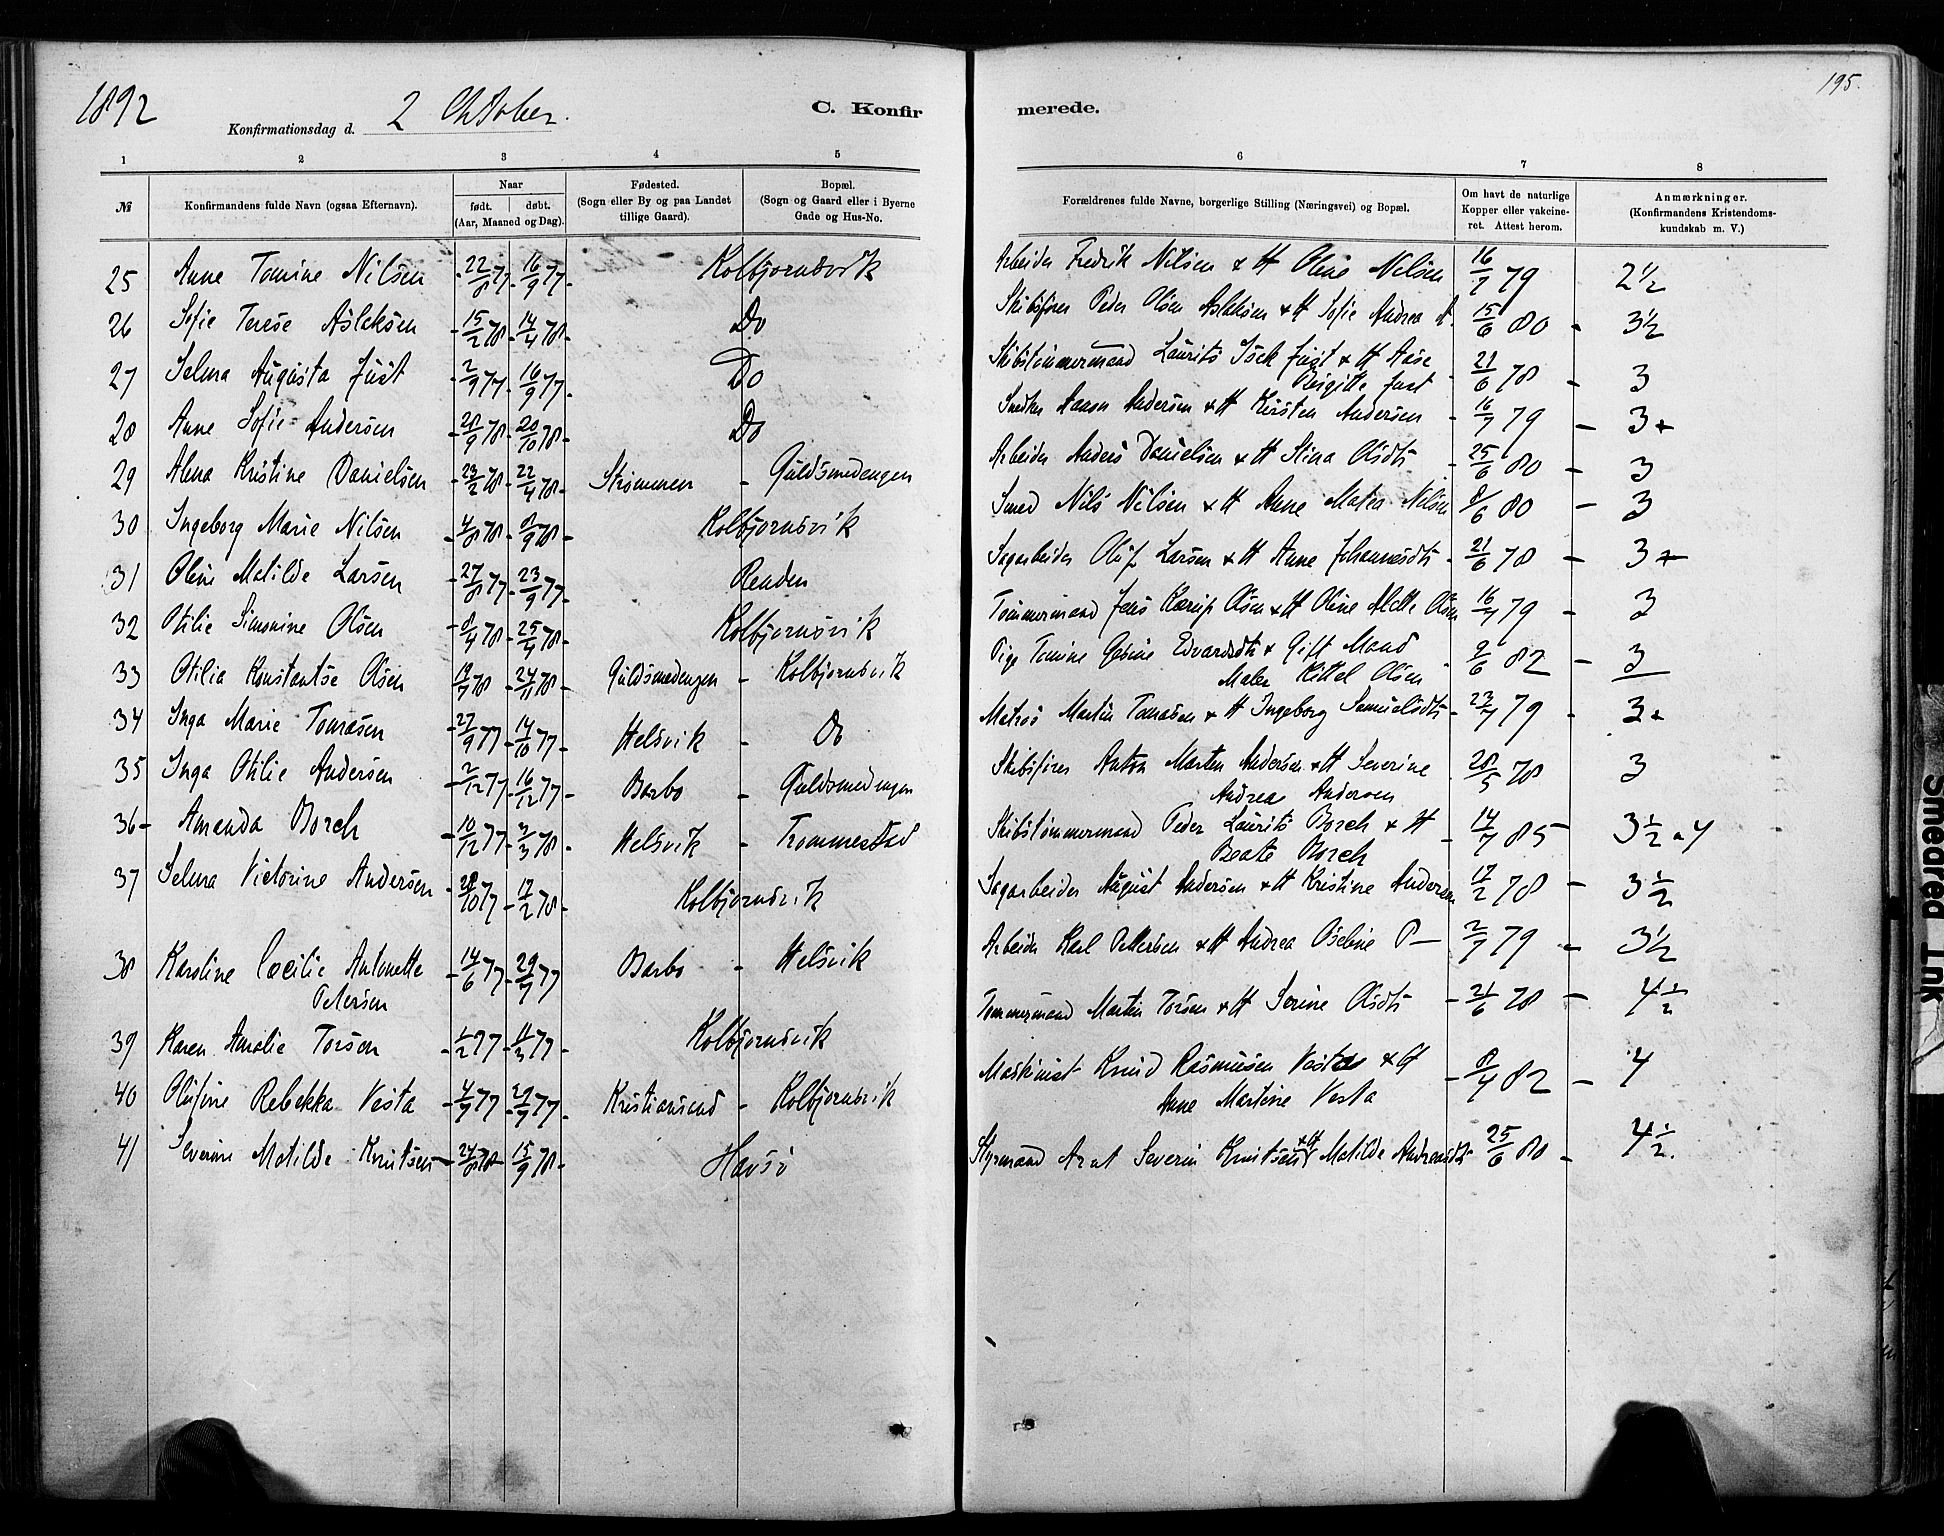 1892
195.
Konfirmationsdag d. 2 Oktober.
C. Konfirmerede.
1 2 3 4 5 6 7 8
№
Konfirmandens fulde Navn (ogsaa Efternavn).
Naar
født. døbt.
(Aar, Maaned og Dag).
Fødested.
(Sogn eller By og paa Landet
tillige Gaard).
Bopæl.
(Sogn og Gaard eller i Byerne
Gade og Hus-No.
Forældrenes fulde Navne, borgerlige Stilling (Næringsvei) og Bopæl.
Om havt de naturlige
Kopper eller vakcine-
ret. Attest herom.
Anmærkninger.
(Konfirmandens Kristendoms-
kundskab m. V.)
25 Anne Tomine Nilsen 22/8 77 16/9 77 Kolbjornsvik Arbeider Fredrik Nilsen & H Oline Nilsen 16/7 79 2½
26 Sofie Terese Aslaksen 15/2 78 14/4 78 Do Skibsfører Peder Olsen Aslaksen & H Sofie Andrea A. 15/6 80 - 3½
27 Selma Augusta Just 2/9 77 16/9 77 Do Skibstømmermand Laurits Isck Just & H Aase
Birgitte Just 21/6 78 - 3
28 Anne Sofie Andersen 28/9 78 20/10 78 Do Snedker Aaron Andersen & H Kirsten Andersen 16/7 79 - 3+
29 Alma Kristine Danielsen 23/2 78 22/4 78 Strømmen - Guldsmedengen Arbeider Anders Danielsen & H Stina Olsdtr 25/6 80 - 3
30 Ingeborg Marie Nilsen 4/8 78 8/9 78 Kolbjornsvik Smed Nils Nilsen & H Anne Matea Nilsen 8/6 80 - 3
31 Oline Matilde Larsen 27/8 77 23/9 77 Renden Sagarbeider Oluf Larsen & H Anne Johannesdtr 21/6 78 - 3+
32 Otilie Simonine Olsen 8/4 78 25/4 78 Kolbjornsvik Tømmermand Jens Kærup Olsen & H Oline Mette Olsen 16/7 79 - 3
33 Otilia Konstantse Olsen 19/7 78 24/11 78 Guldsmedengen - Kolbjornsvik Pige Tomine Gesine Edvardsdtr & Gift Mand
Maler Kittel Olsen 9/6 82 - 3
34 Inga Marie Tomasen 27/9 77 14/10 77 Helsvik - Do Matros Martin Tomasen & H Ingeborg Samuelsdtr 23/7 79 - 3+
35 Inga Otilie Andersen 2/12 77 16/12 77 Barbo - Guldsmedengen Skibsfører Anton Marten Andersen & H Severine
Andrea Andersen 28/5 78 3
36 - Amanda Borch 10/12 77 3/3 78 Helsvik - Trommestad Skibstømmermand Peder Laurits Borch & H
Beate Borch 14/7 85 3½ a 4
37 Selma Victorine Andersen 28/10 77 17/2 78 Kolbjornsvik Sagarbeider August Andersen & H Kristine Andersen 17/2 78 - 3½
38 Karoline Cecilie Antonette
Petersen 14/6 77 29/7 77 Barbo - Helsvik Arbeider Karl Pettersen & H Andrea Oseline P— 2/7 79 - 3½
39 Karen Amalie Torsen 1/2 77 11/3 77 Kolbjornsvik Tømmermand Martin Torsen & H Serine Olsdtr 21/6 78 - 4½
40 Olufine Rebekka Vesta 4/7 77 29/7 77 Kristiansand - Kolbjornsvik Maskinist Knud Rasmusen Vesta & H
Anne Martine Vesta 8/4 82 - 4
41 Severine Matilde Knutsen 24/8 78 15/9 78 Havsø Styrmand Arnt Severin Knutsen & H Matilde Andreasdtr 25/6 80 - 4½.
Smeared Ink